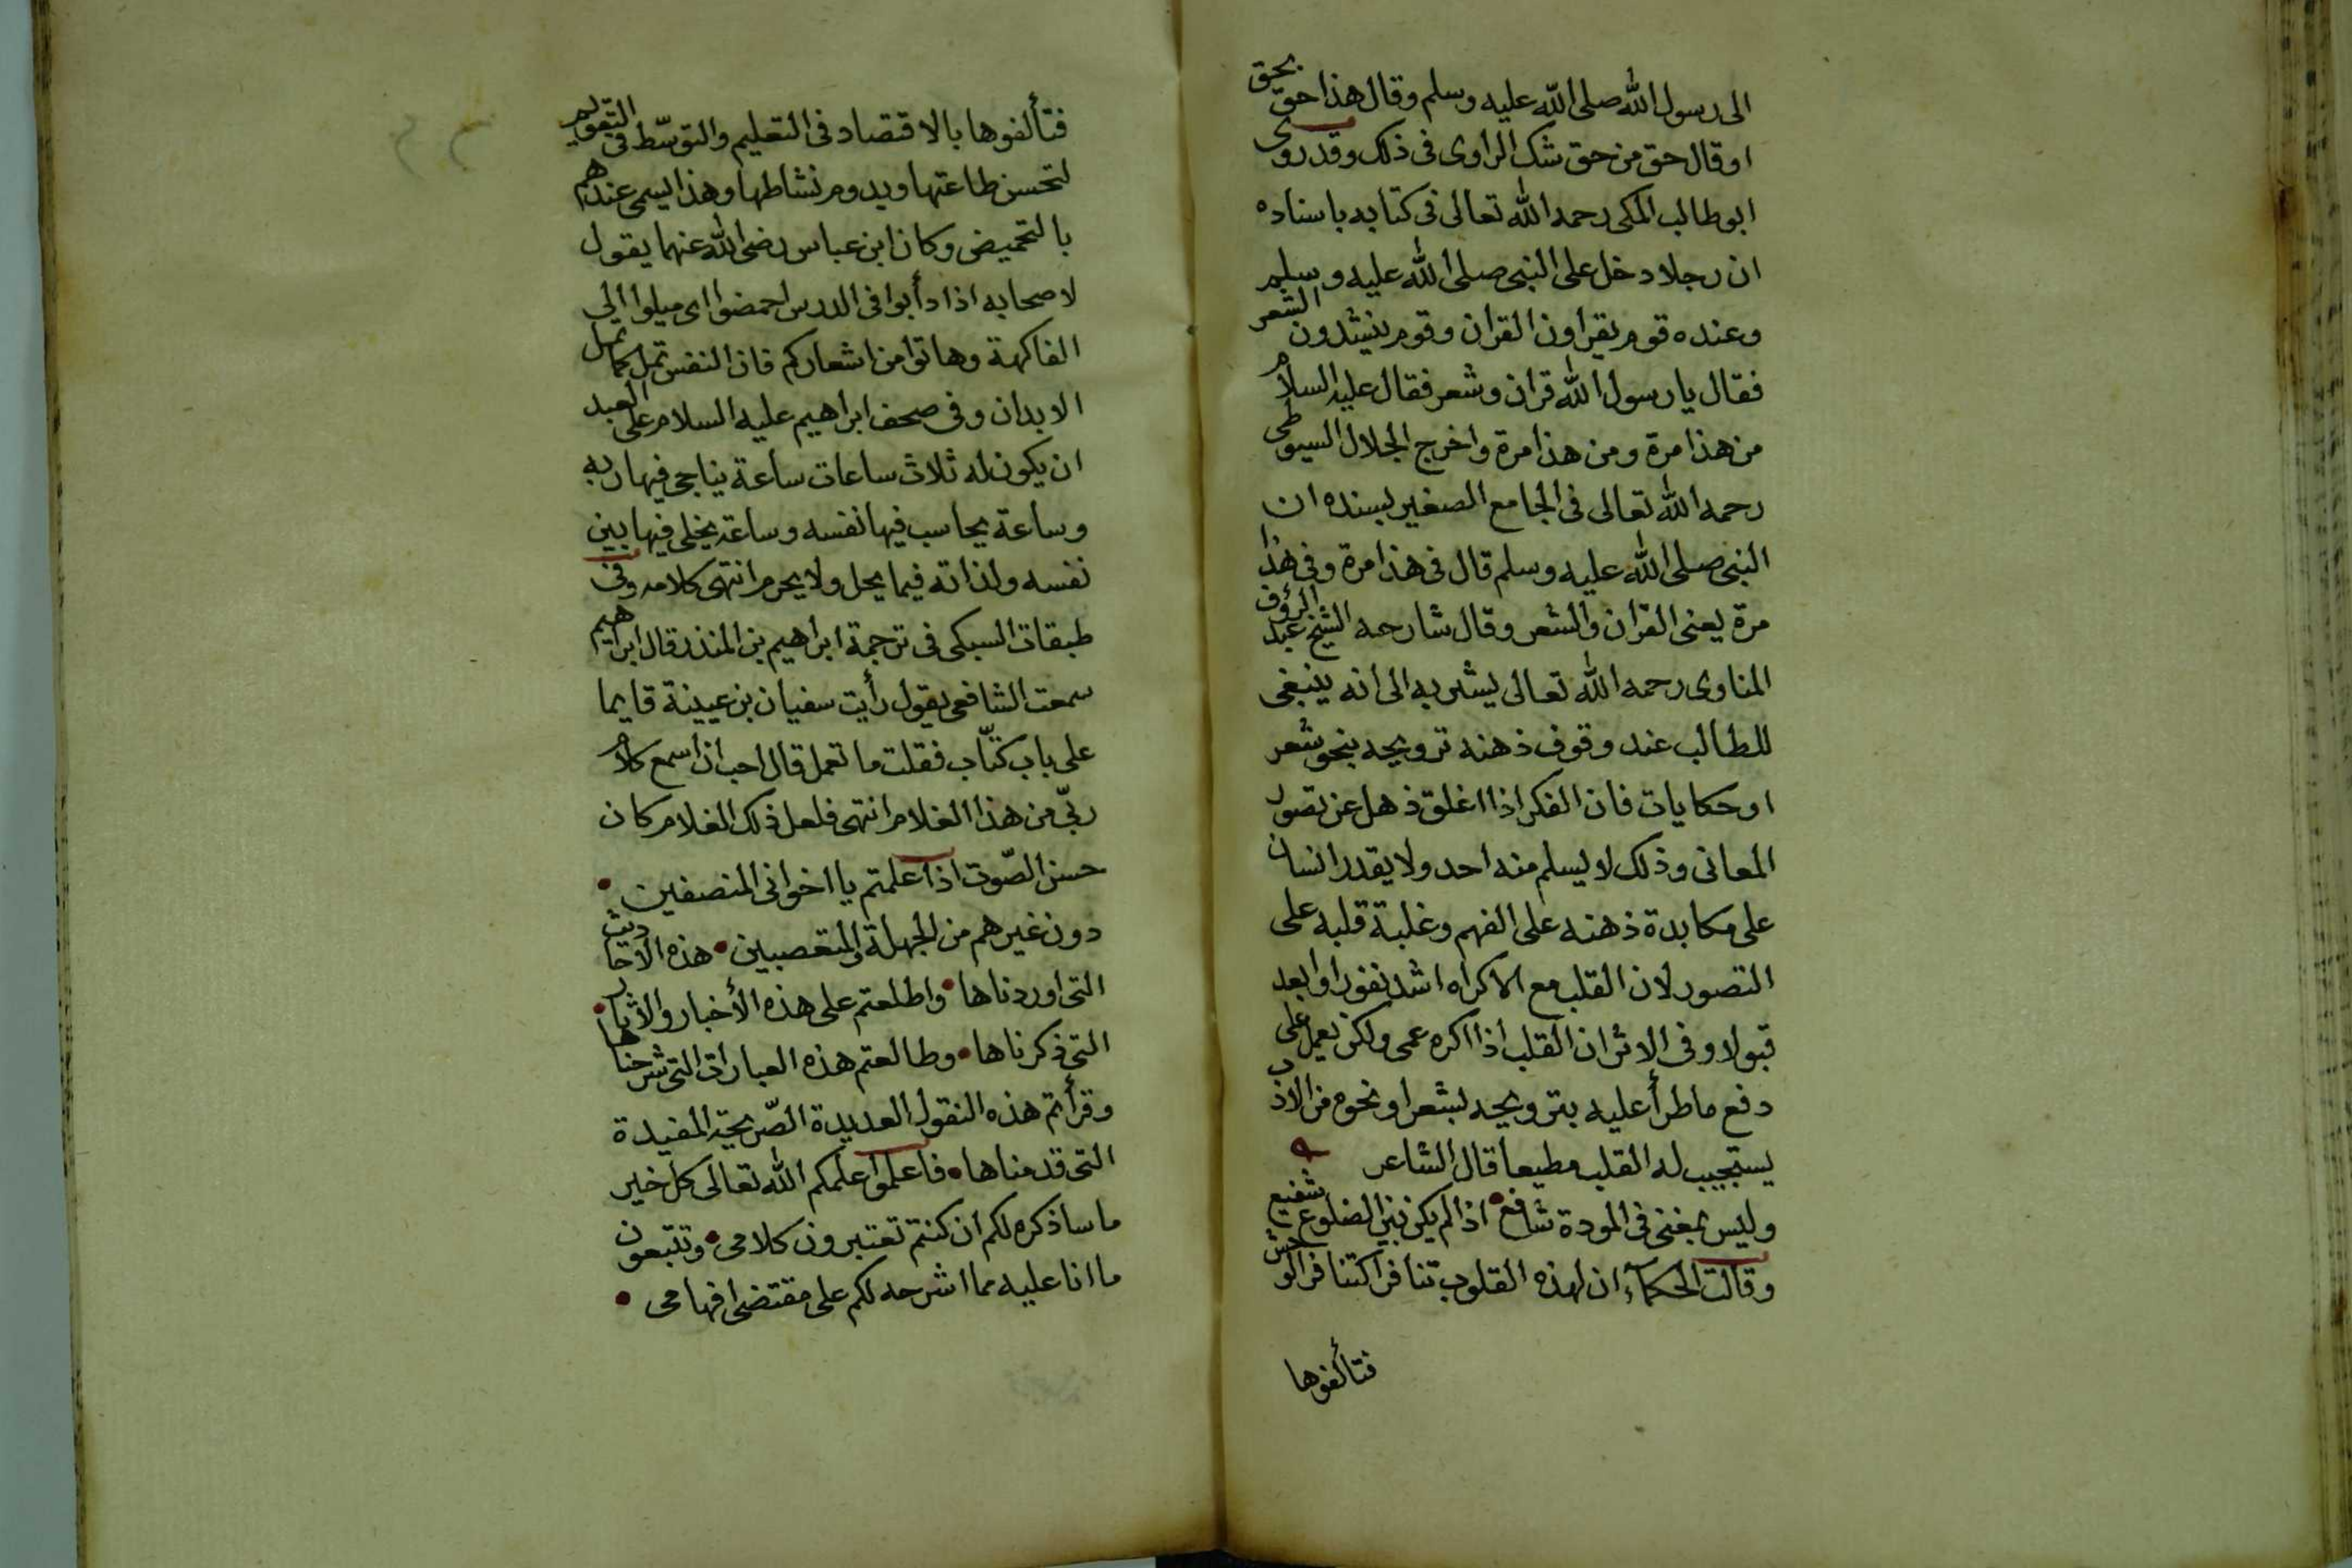 الى رسول الله صلى الله عليه وسلم وقال هذا حق بحق
او قال حق من حق شك الراوى فى ذلك وقد روى
ابو طالب المكى رحمه الله تعالى فى كتابه باسناده
ان رجلا دخل على النبى صلى الله عليه وسلم
وعنده قوم يقراون القران وقوم ينشدون الشعر
فقال يا رسول الله قران وشعر فقال عليه السلام
من هذا مرة ومن هذا مرة واخرج الجلال السيوطى
رحمه الله تعالى فى الجامع الصغير بسنده ان
النبى صلى الله عليه وسلم قال فى هذا مرة وفى هذا
مرة يعنى القران والشعر وقال شارحه الشيخ عبد الرؤف
المناوى رحمه الله تعالى يشير به الى انه ينبغى
للطالب عند وقوف ذهنه ترويحه بنحو شعر
او حكايات فان الفكر اذا اغلق ذهل عن تصور
المعانى وذلك لا يسلم منه احد ولا يقدر انسان
على مكابدة ذهنه على الفهم وغلبة قلبه على
التصور لان القلب مع الاكراه اشد نفورا وابعد
قبولا وفى الاثر ان القلب اذا اكره عمى ولكن يعمل على
دفع ما طرأ عليه بترويحه بشعر او نحوه من الادب
يستجيب له القلب مطيعا قال الشاعر
وليس بمغنى فى المودة شافع • اذا لم يكن بين الضلوع شفيع
وقالت الحكمآء ان لهذه القلوب تنافرا كتنافر الوحش
فتألفوها
فتألفوها بالاقتصاد فى التعليم والتوسّط فى التقويم
لتحسن طاعتها ويدوم نشاطها وهذا يسمى عندهم
بالتحميض وكان ابن عباس رضى الله عنهما يقول
لاصحابه اذا دأبوا فى الدرس احمضوا اى ميلوا الى
الفاكهة وهاتوا من اشعاركم فان النفس تمل كما تمل
الابدان وفى صحف ابراهيم عليه السلام على العبد
ان يكون له ثلاث ساعات ساعة يناجى فيها ربه
وساعة يحاسب فيها نفسه وساعة يخلى فيها بين
نفسه ولذاته فيما يحل ولا يحرم انتهى كلامه وفى
طبقات السبكى فى ترجمة ابراهيم بن المنذر قال ابراهيم
سمعت الشافعى يقول رأيت سفيان بن عيينة قايما
على باب كتّاب فقلت ما تعمل قال احب ان اسمع كلام
ربّى من هذا الغلام انتهى فلعل ذلك الغلام كان
حسن الصّوت اذا علمتم يا اخوانى المنصفين •
دون غيرهم من الجهلة والمتعصبين • هذه الاحاديث
التى اوردناها • واطلعتم على هذه الأخبار والاثار •
التى ذكرناها • وطالعتم هذه العبارات التى شرحناها
وقرأتم هذه النقول العديدة الصّريحة المفيدة
التى قدمناها • فاعلموا علمكم الله تعالى كل خير
ما ساذكره لكم ان كنتم تعتبرون كلامى • وتتبعون
ما انا عليه مما اشرحه لكم على مقتضى افهامى •